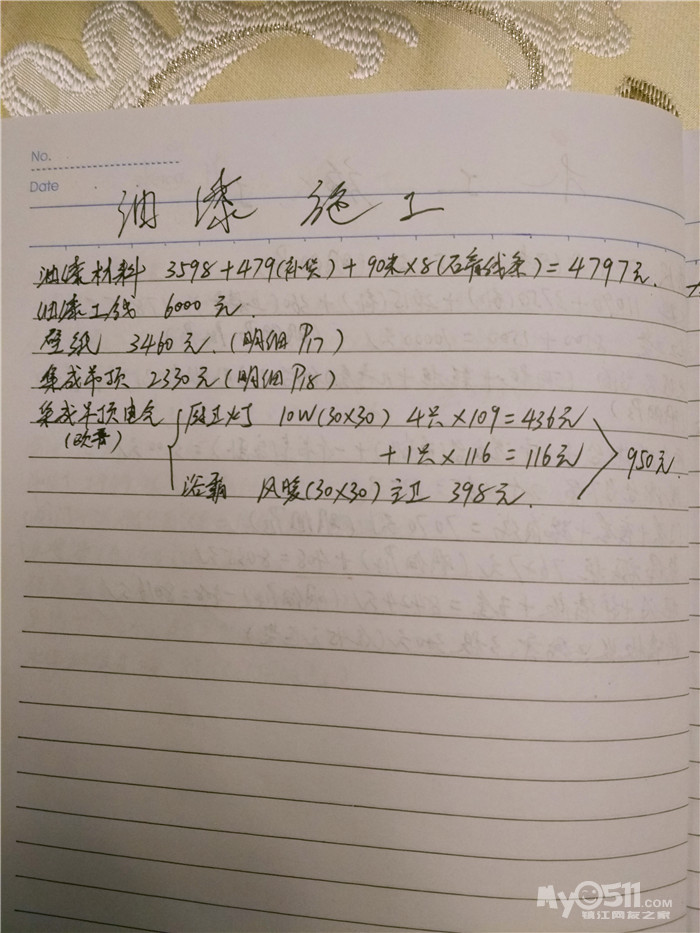 No.
Date
油漆 施工
油漆材料 3598+479(补货)+90米×8(石膏线条)=4797元.
油漆工钱 6000元.
壁纸 3460元.(明细P17)
集成吊顶 2330元(明细P18)
集成吊顶电气 厨卫灯 10W(30×30) 4只×109=436元
(欧普) +1只×116=116元 950元.
浴霸 风暖(30×30)主卫 398元.
My0511.COM
镇江网友之家